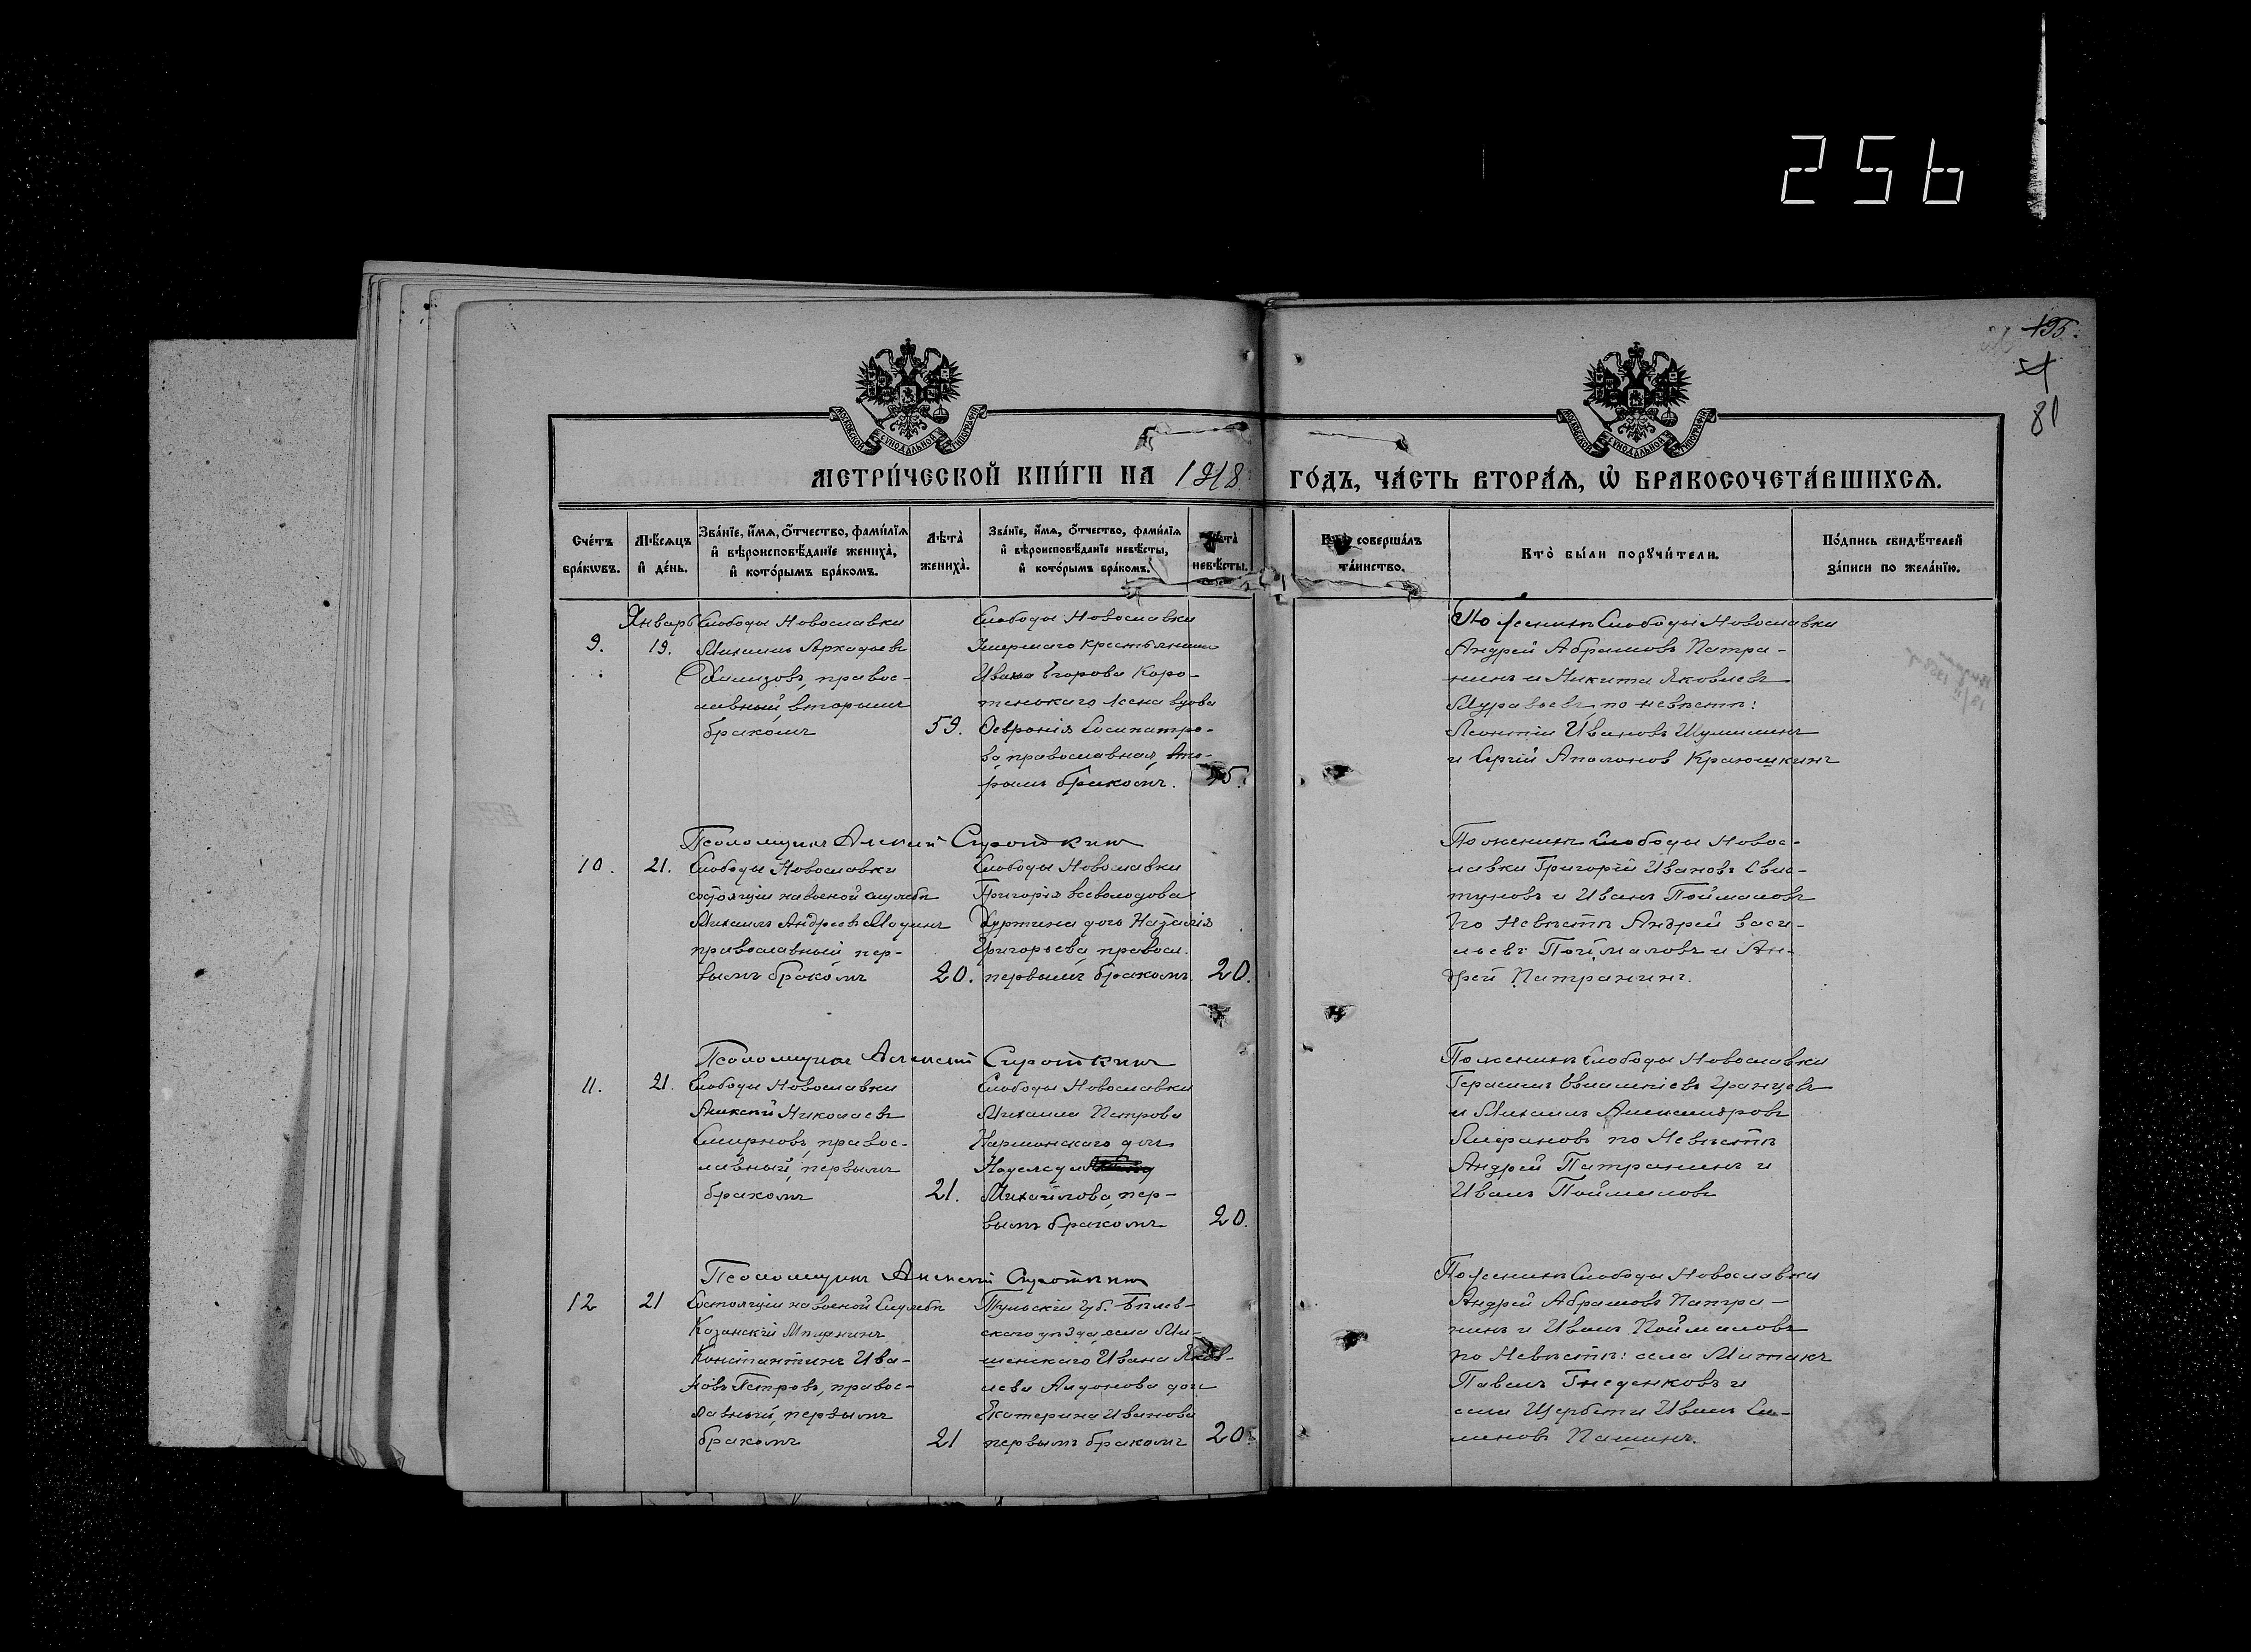 256
195.
81
МОСКОВСКОЙ СУНОДАЛЬНОЙ ТИПОГРАФІИ
МОСКОВСКОЙ СУНОДАЛЬНОЙ ТИПОГРАФІИ
МЕТРИ́ЧЕСКОЙ КНИ́ГИ НА 1918 ГО́ДЪ, ЧА́СТЬ ВТОРА́Ѧ, Ѽ БРАКОСОЧЕТА́ВШИХСѦ.
Сче́тъ
бра́кѡвъ.
Мѣ́сѧцъ
и҆ де́нь.
Зва́нїе, и҆́мѧ, ѻ҆́тчество, фами́лїѧ
и҆ вѣроисповѣ́данїе жениха̀,
и҆ кото́рымъ бра́комъ.
Лѣта̀
жениха̀.
Зва́нїе, и҆́мѧ, ѻ҆́тчество, фами́лїѧ
и҆ вѣроисповѣ́данїе невѣ́сты,
и҆ кото́рымъ бра́комъ.
Лѣта̀
невѣ́сты.
Кто̀ соверша́лъ
та́инство.
Кто̀ бы́ли порꙋчи́тели.
По́дпись свидѣ́телей
за́писи по жела́нїю.
9.
Январь
19.
Слободы Новославки
Михаилъ Аркадьевъ
правос-
лавный, вторымъ
бракомъ
59.
Слободы Новославки
Умершаго крестьянина
Ивана Егорова Коро-
тенькаго жена вдова
Февронія Сосипатро-
ва, православная, вто-
рымъ бракомъ.
По женихѣ Слободы Новославки
Андрей Абрамовъ Патра-
нинъ и Никита Яковлевъ
Муравьевъ, по невѣстѣ:
Леонтій Ивановъ Шумилинъ
и Сергій Аполоновъ Краюшкинъ
Псаломщикъ Алексѣй Сироткинъ
10.
21.
Слободы Новославки
состоящій на военой службѣ
Михаилъ Андреевъ
православный пер-
вымъ бракомъ
20.
Слободы Новославки
Григорія Всеволодова
дочь Наталія
Григорьева правосл.
первымъ бракомъ.
20.
По женихѣ Слободы Новос-
лавки Григорій Ивановъ Свис-
туновъ и Иванъ Поймаловъ
По Невѣстѣ Андрей Васи-
льевъ Поймаловъ и Ан-
дрей Патранинъ.
Псаломщикъ Алексѣй Сироткинъ
11.
21.
Слободы Новославки
Алексѣй Николаевъ
Смирновъ, правос-
лавный, первымъ
бракомъ
21.
Слободы Новославки
Михаила Петрова
Кармонскаго дочь
Надежда
Михайлова, пер-
вымъ бракомъ
20.
По женихѣ Слободы Новославки
Герасимъ
и Михаилъ Александровъ
по Невѣстѣ
Андрей Патранинъ и
Иванъ Поймаловъ
Псаломщикъ Алексѣй Сироткинъ
12
21
Состоящій на военой Службѣ
Казанскій Мѣщанинъ
Константинъ Ива-
новъ Петровъ, правос-
лавный, первымъ
бракомъ
21
Тульскій Губ. Бѣлев-
скаго уѣзда, села Ми-
шенскаго Ивана Яков-
лева дочь
Екатерина Иванова
первымъ бракомъ
20.
По женихѣ Слободы Новославки
Андрей Абрамовъ Патра-
нинъ и Иванъ Поймаловъ
по Невѣстѣ: села Матакъ
Павелъ Гнеденковъ и
села Щербети Иванъ Се-
меновъ Пашинъ.